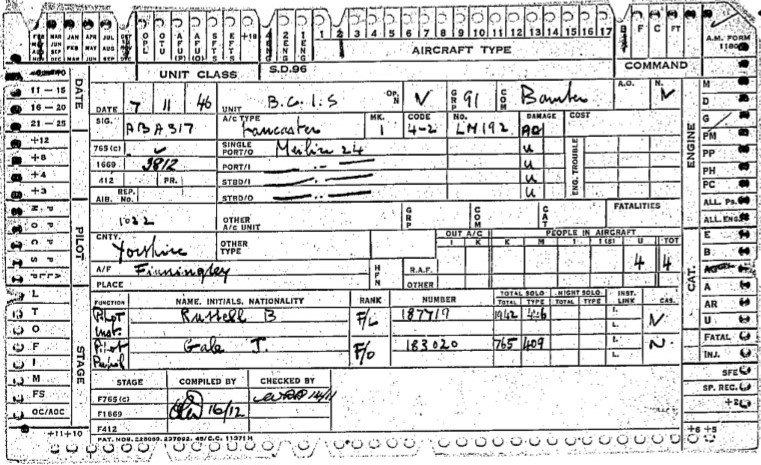 FEB MAR JAN APR JUL
O.P.L. OTU AFU (P) AFU (O) SFTS EFTS +18 4 ENG 2 ENG 1 ENG 1 2 3 4 5 6 7 8 9 10 11 12 13 14 15 16 17 F C FT A.M. FORM 1180
AIRCRAFT TYPE
UNIT CLASS S.D.96 COMMAND
11 — 15
16 — 20
21 — 25
DATE
DATE 7 11 46 UNIT B.C.I.S OP. N N GRP 91 COM Bomber A.O. N.
SIG. ABA 317 A/C TYPE Lancaster MK. 1 CODE 4-2 No. LM192 DAMAGE AC COST
+12
+8
+4
+3
765 (c) SINGLE PORT/O Merlin 24 u ENG. TROUBLE
1669 3812 PORT/I u
412 PR. STBD/I u
AIB. REP. No. STBD/O u
1022 OTHER A/C UNIT GRP COM CAT FATALITIES
CNTY. Yorshire OTHER TYPE OUT A/C PEOPLE IN AIRCRAFT
I K K M I I (S) U TOT
4 4
A/F Finningley HFN R.A.F.
PLACE OTHER
FUNCTION NAME, INITIALS, NATIONALITY RANK NUMBER TOTAL SOLO NIGHT SOLO INST. LINK CAS.
TOTAL TYPE TOTAL TYPE
Pilot Inst. Russell B F/L 187719 1942 426 I. L. N
Pilot Gale J. F/O 183020 765 409 I. L. N.
STAGE COMPILED BY CHECKED BY
F765 (c)
F1669 16/12
F412
PAT. NOS.
PILOT
STAGE
L
T
O
F
I
M
FS
OC/AOC
+11+10
ENGINE
M
D
G
PM
PP
PH
PC
ALL. Ps.
ALL. ENGS
CAT.
E
B
A
AR
U
FATAL
INJ.
SFE
SP. REC.
+2
+6 +5